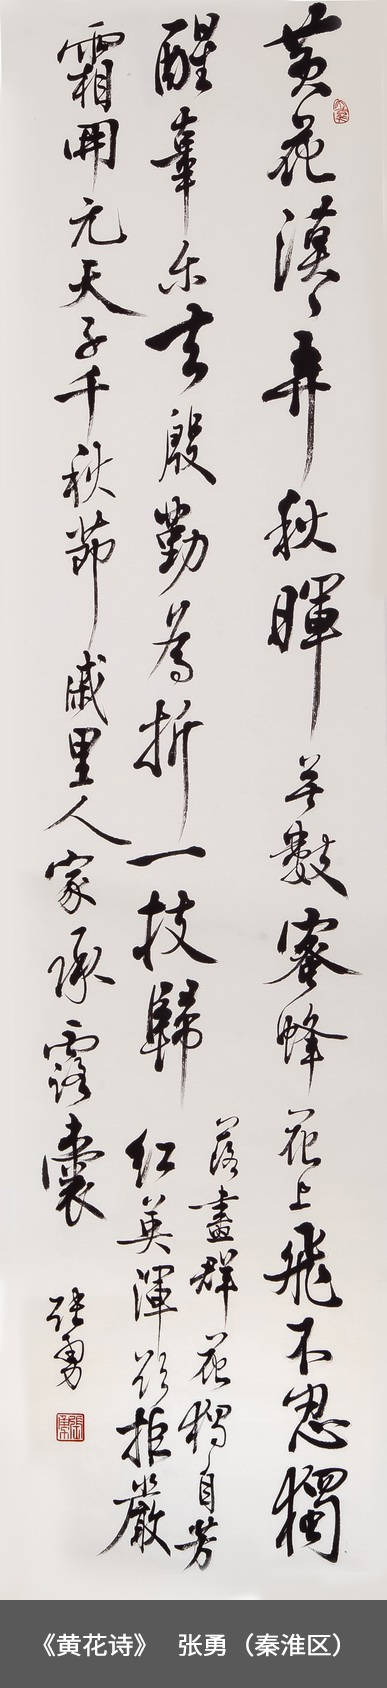 黄花漠々弄秋暉無數蜜蜂花上飛不忍獨
醒辜尔去殷勤為折一枝歸
落盡群花獨自芳
红英渾欲拒嚴
霜開元天子千秋節戚里人家承露囊
张勇
《黄花诗》 张勇（秦淮区）